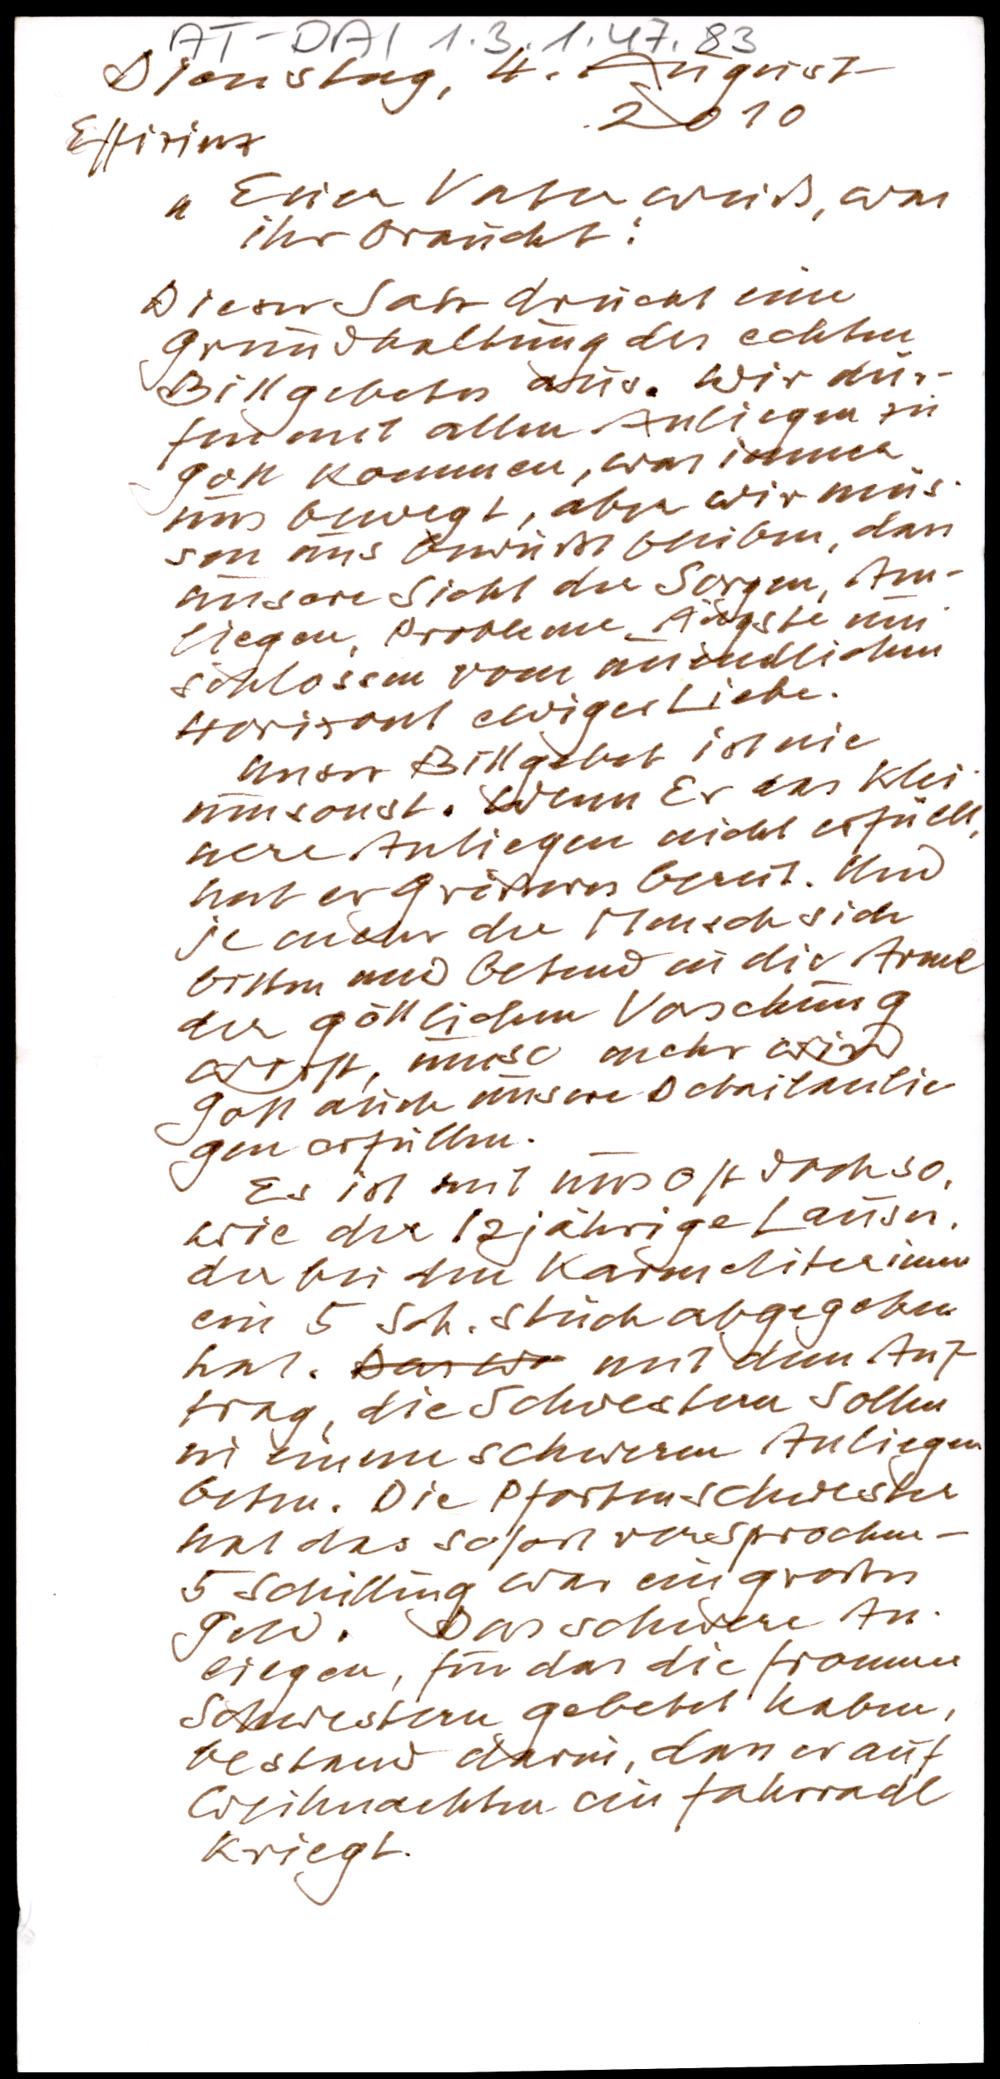 AT-DAI 1.3.1.47.83
Dienstag, 4. August
2010
Effirinx
" Euer Vater weiß, was
ihr braucht :
Dieser Satz drückt eine
Grundhaltung des echten
Bittgebetes aus. Wir dür-
fen mit allen Anliegen zu
Gott kommen, was immer
uns bewegt, aber wir müs-
sen uns bewußt bleiben, dass
unsere Sicht der Sorgen, An-
liegen, Probleme, Ängste um
schlossen vom unendlichen
Horizont ewiger Liebe.
Unser Bittgebet ist nie
umsonst. Wenn Er das klei
nere Anliegen nicht erfüllt,
hat er Größeres bereit. Und
je mehr der Mensch sich
bitten und betend in die Arme
der göttlichen Vorsehung
wirft, umso mehr wird
Gott auch unsere Detailanlie
gen erfüllen.
Es ist mit uns oft doch so,
wie der 12jährige Lauser,
der bei den Karmeliterinnen
ein 5 Sch. Stück abgegeben
hat. Das wr mit dem Auf
trag, die Schwestern sollen
in einem schweren Anliegen
beten. Die Pfortenschwester
hat das sofort versprochen -
5 Schilling war ein großes
Geld. Das schwere An-
liegen, für das die frommen
Schwestern gebetet haben,
bestand darin, dass er auf
Weihnachten ein Fahrradl
kriegt.